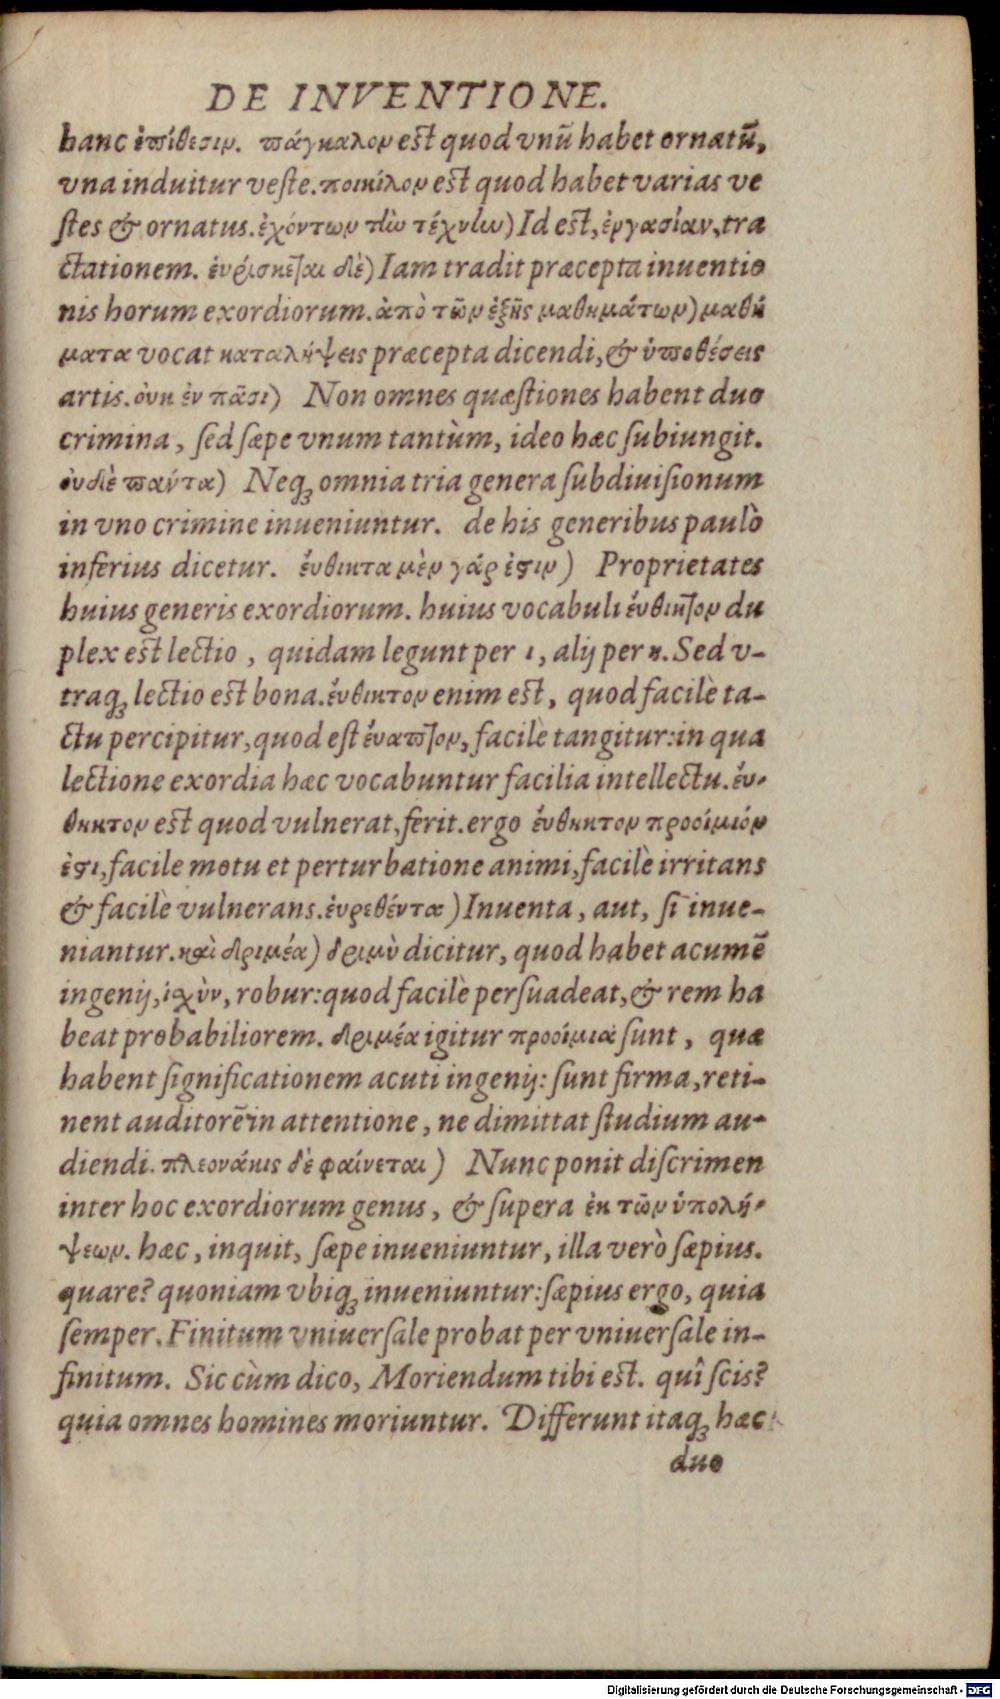 DE INVENTIONE.
hanc ἐπίθεσιν. πάγκαλον est quod vnũ habet ornatũ,
vna induitur veste. ποικίλον est quod habet varias ve
stes & ornatus. ἐχόντων τὴν τέχνην) Id est, ἐργασίαν, tra
ctationem. ἑυρίσκεται δὲ) Iam tradit præcepta inuentio
nis horum exordiorum. ἀπὸ τῶν ἑξῆς μαθημάτων) μαθή
ματα vocat καταλήψεις præcepta dicendi, & ὑποθέσεις
artis. ὀυκ ἐν πᾶσι) Non omnes quæstiones habent duo
crimina, sed sæpe vnum tantùm, ideo hæc subiungit.
ὀυδὲ πάντα) Neqꝫ omnia tria genera subdiuisionum
in vno crimine inueniuntur. de his generibus paulò
inferius dicetur. ἔυθικτα μὲν γάρ ἐστιν) Proprietates
huius generis exordiorum. huius vocabuli ἔυθικτον du
plex est lectio, quidam legunt per ι, alij per η. Sed v-
traqꝫ lectio est bona. ἔυθικτον enim est, quod facilè ta-
ctu percipitur, quod est ἔυαπτον, facilè tangitur: in qua
lectione exordia hæc vocabuntur facilia intellectu. ἔυ-
θηκτον est quod vulnerat, ferit. ergo ἔυθηκτον προοίμιόν
ἐστι, facile motu et perturbatione animi, facilè irritans
& facilè vulnerans. ἑυρεθέντα) Inuenta, aut, si inue-
niantur. καὶ δριμέα) δριμὺ dicitur, quod habet acumẽ
ingenij, ἰσχὺν, robur: quod facilè persuadeat, & rem ha
beat probabiliorem. δριμέα igitur προοίμια sunt, quæ
habent significationem acuti ingenij: sunt firma, reti-
nent auditorẽ in attentione, ne dimittat studium au-
diendi. πλεονάκις δὲ φαίνεται) Nunc ponit discrimen
inter hoc exordiorum genus, & supera ἐκ τῶν ὑπολή-
ψεων. hæc, inquit, sæpe inueniuntur, illa verò sæpius.
quare? quoniam vbiqꝫ inueniuntur: sæpius ergo, quia
semper. Finitum vniuersale probat per vniuersale in-
finitum. Sic cùm dico, Moriendum tibi est. quî scis?
quia omnes homines moriuntur. Differunt itaqꝫ hæc
duo
Digitalisierung gefördert durch die Deutsche Forschungsgemeinschaft - DFG